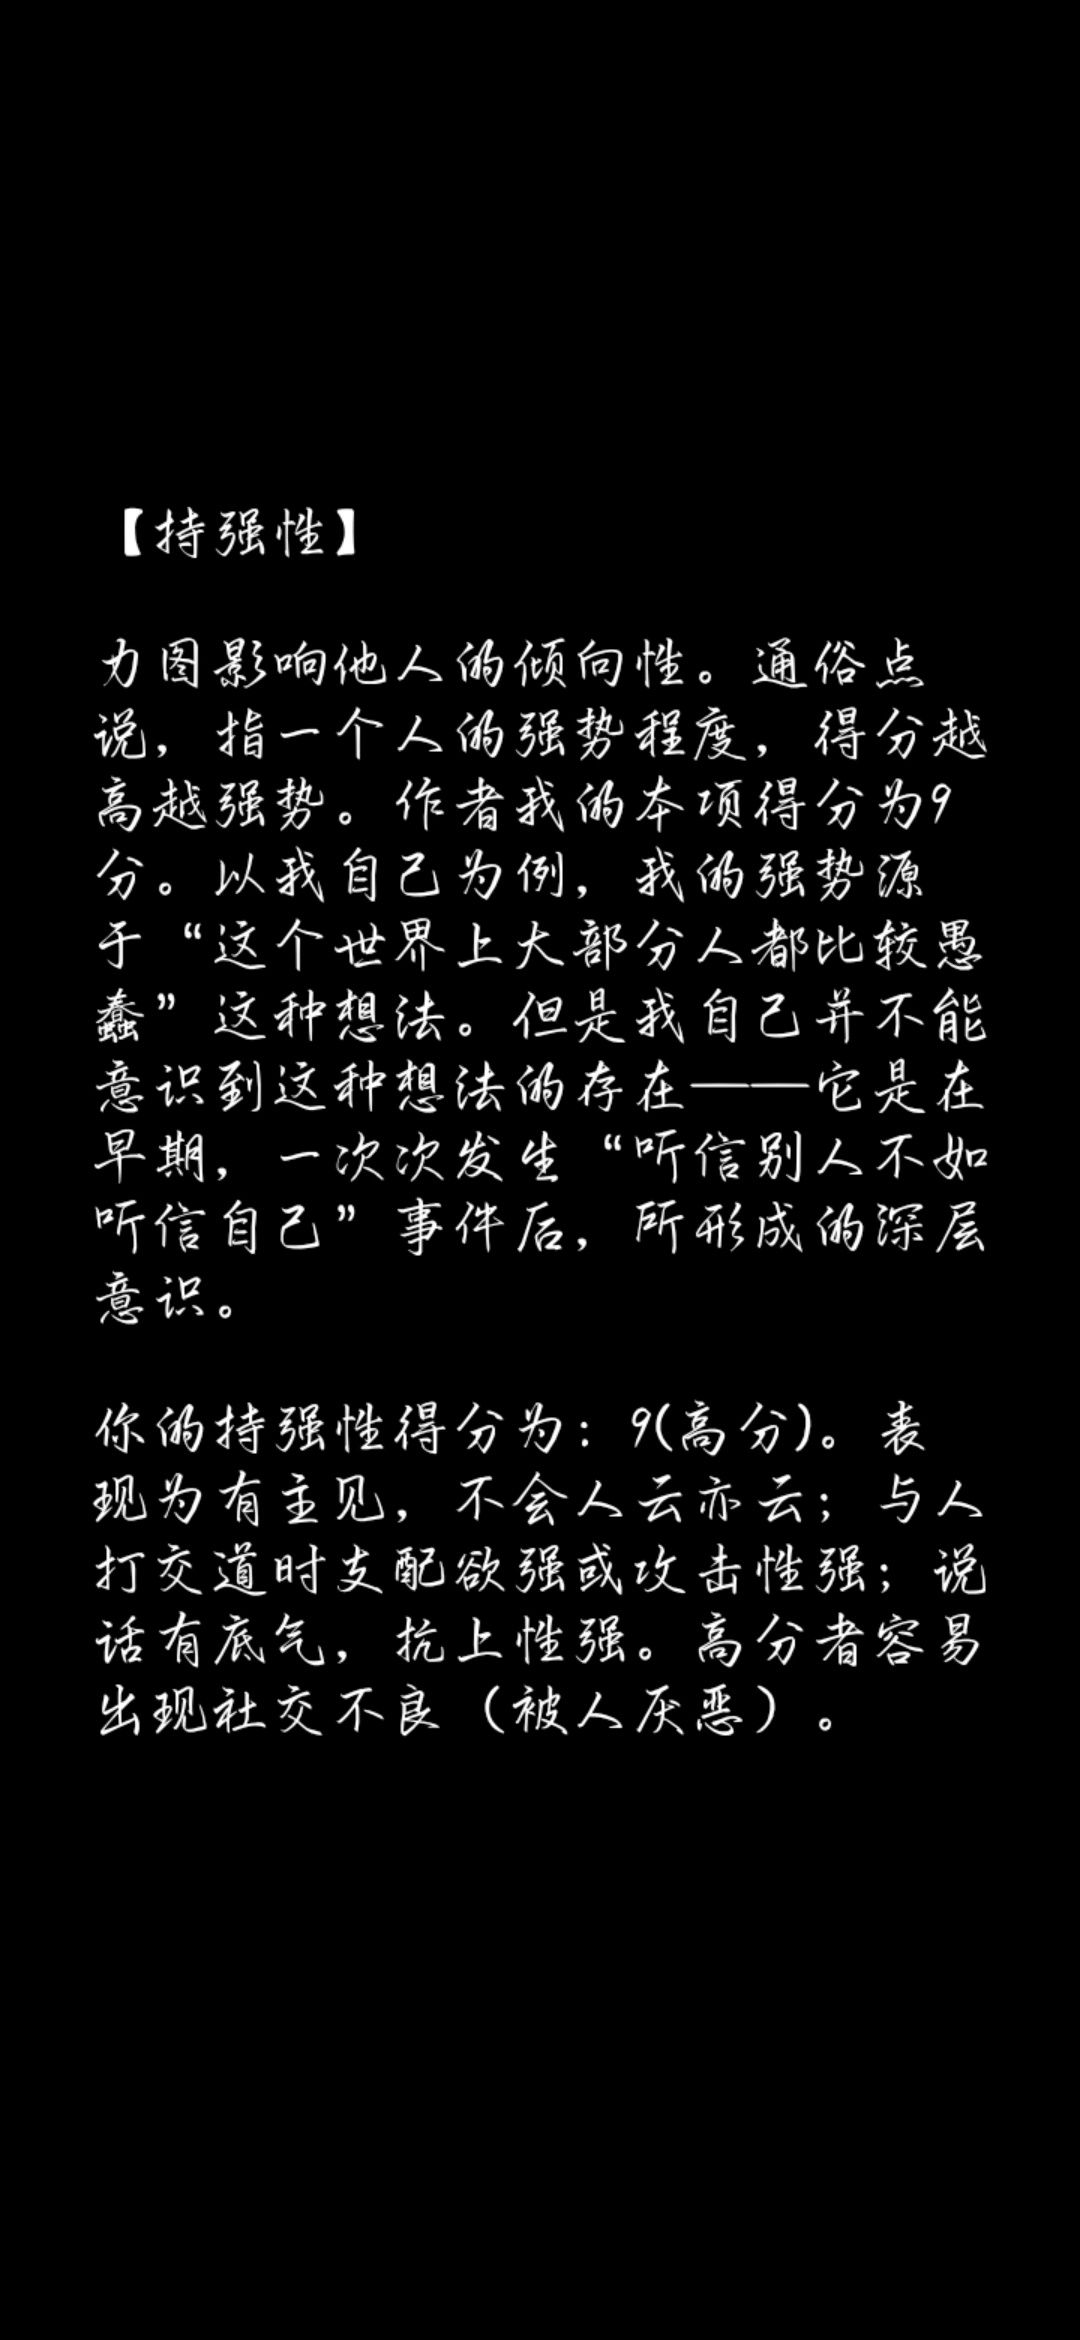 【持强性】
力图影响他人的倾向性。通俗点
说，指一个人的强势程度，得分越
高越强势。作者我的本项得分为9
分。以我自己为例，我的强势源
于“这个世界上大部分人都比较愚
蠢”这种想法。但是我自己并不能
意识到这种想法的存在——它是在
早期，一次次发生“听信别人不如
听信自己”事件后，所形成的深层
意识。
你的持强性得分为：9(高分)。表
现为有主见，不会人云亦云；与人
打交道时支配欲强或攻击性强；说
话有底气，抗上性强。高分者容易
出现社交不良（被人厌恶）。